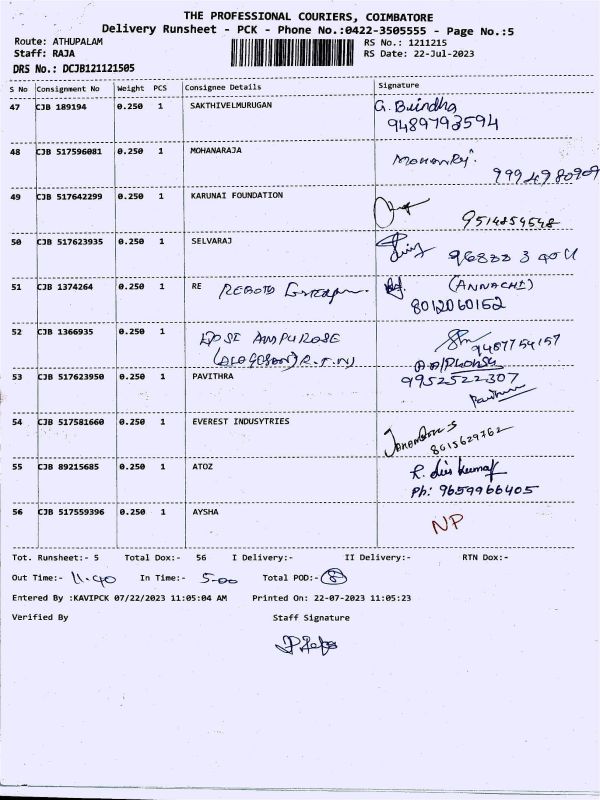 THE PROFESSIONAL COURIERS, COIMBATORE
Delivery Runsheet - PCK - Phone No.:0422-3505555 - Page No.:5
Route: ATHUPALAM RS No.: 1211215
Staff: RAJA RS Date: 22-Jul-2023
DRS No.: DCJB121121505
S No Consignment No Weight PCS Consignee Details Signature
47 CJB 189194 0.250 1 SAKTHIVELMURUGAN G. Brindha
9489793594
48 CJB 517596081 1 0.250 1 MOHANARAJA Mohanraj
9994980909
49 CJB 517642299 0.250 1 KARUNAI FOUNDATION
9514854548
50 CJB 517623935 0.250 1 SELVARAJ
51 CJB 1374264 0.250 1 RE (ANNACHI)
8012060152
52 CJB 1366935 0.250 1
9487754157
53 CJB 517623950 0.250 1 PAVITHRA 9952522307
54 CJB 517581660 0.250 1 EVEREST INDUSYTRIES
8015629762
55 CJB 89215685 0.250 1 ATOZ
Ph: 9659966405
56 CJB 517559396 0.250 1 AYSHA NP
Tot. Runsheet:- 5 Total Dox:- 56 I Delivery:- II Delivery:- RTN Dox:-
Out Time:- 11.40 In Time:- 5-00 Total POD:- 8
Entered By :KAVIPCK 07/22/2023 11:05:04 AM Printed On: 22-07-2023 11:05:23
Verified By Staff Signature